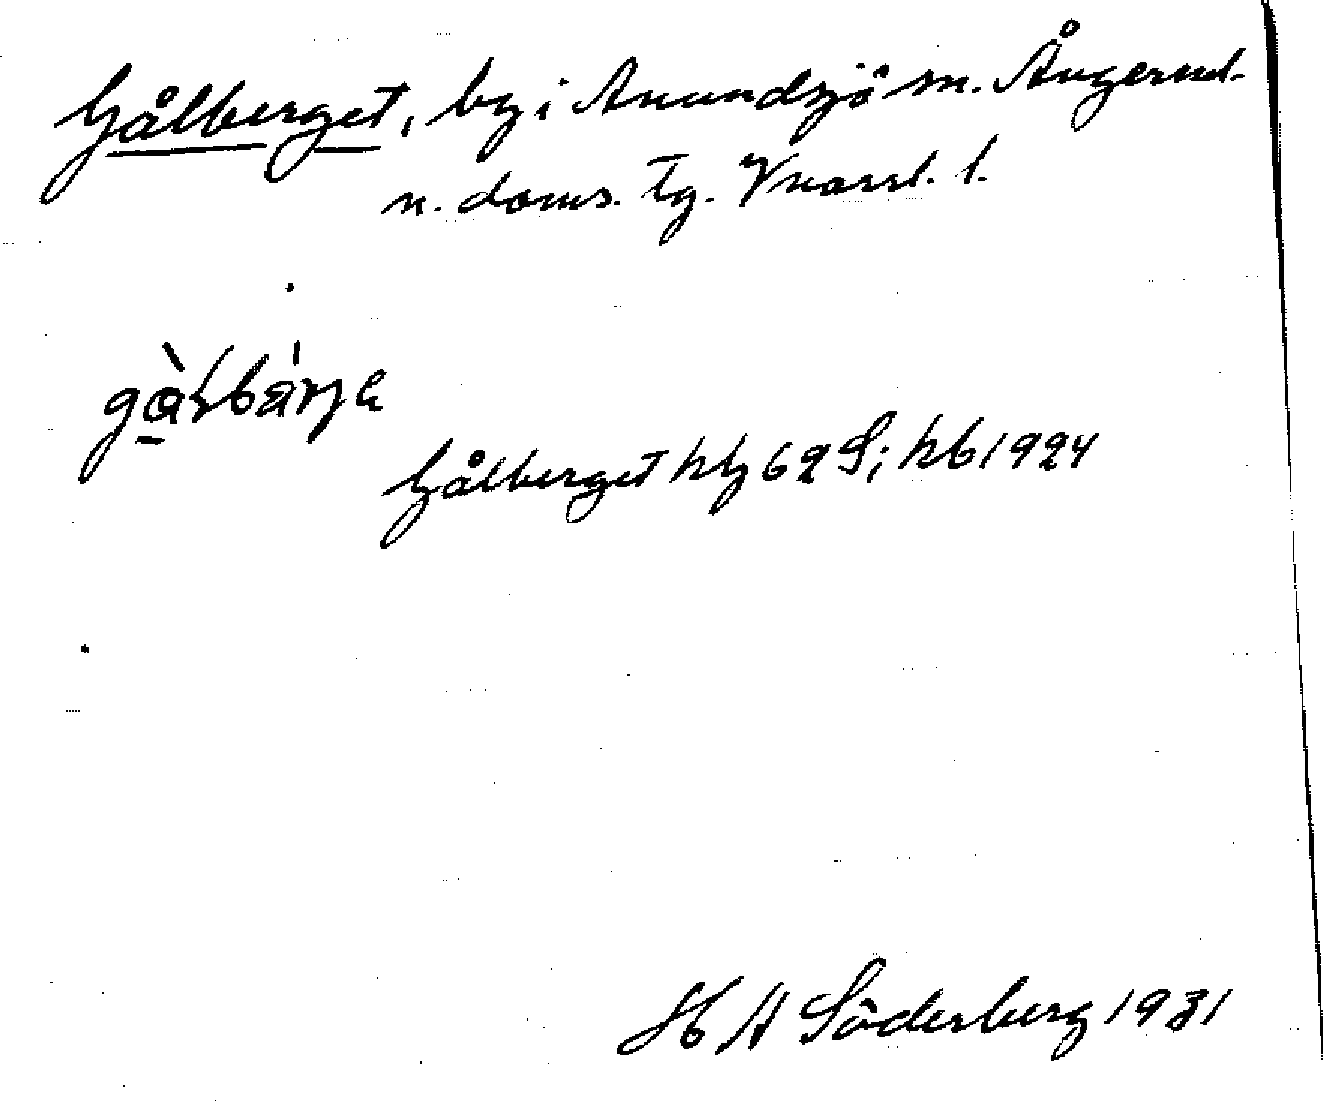 Gålberget, by i Anundsjö sn. Ångerml.
n. doms. tg. Vnorrl. l.
gàɽbárje
Gålberget hfg 62 S; hb 1924
H A Söderberg 1931